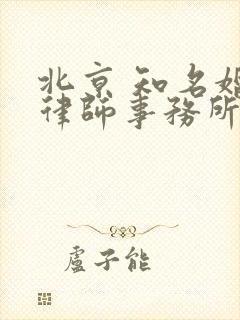 北京知名婚
律師事務所
盧子能